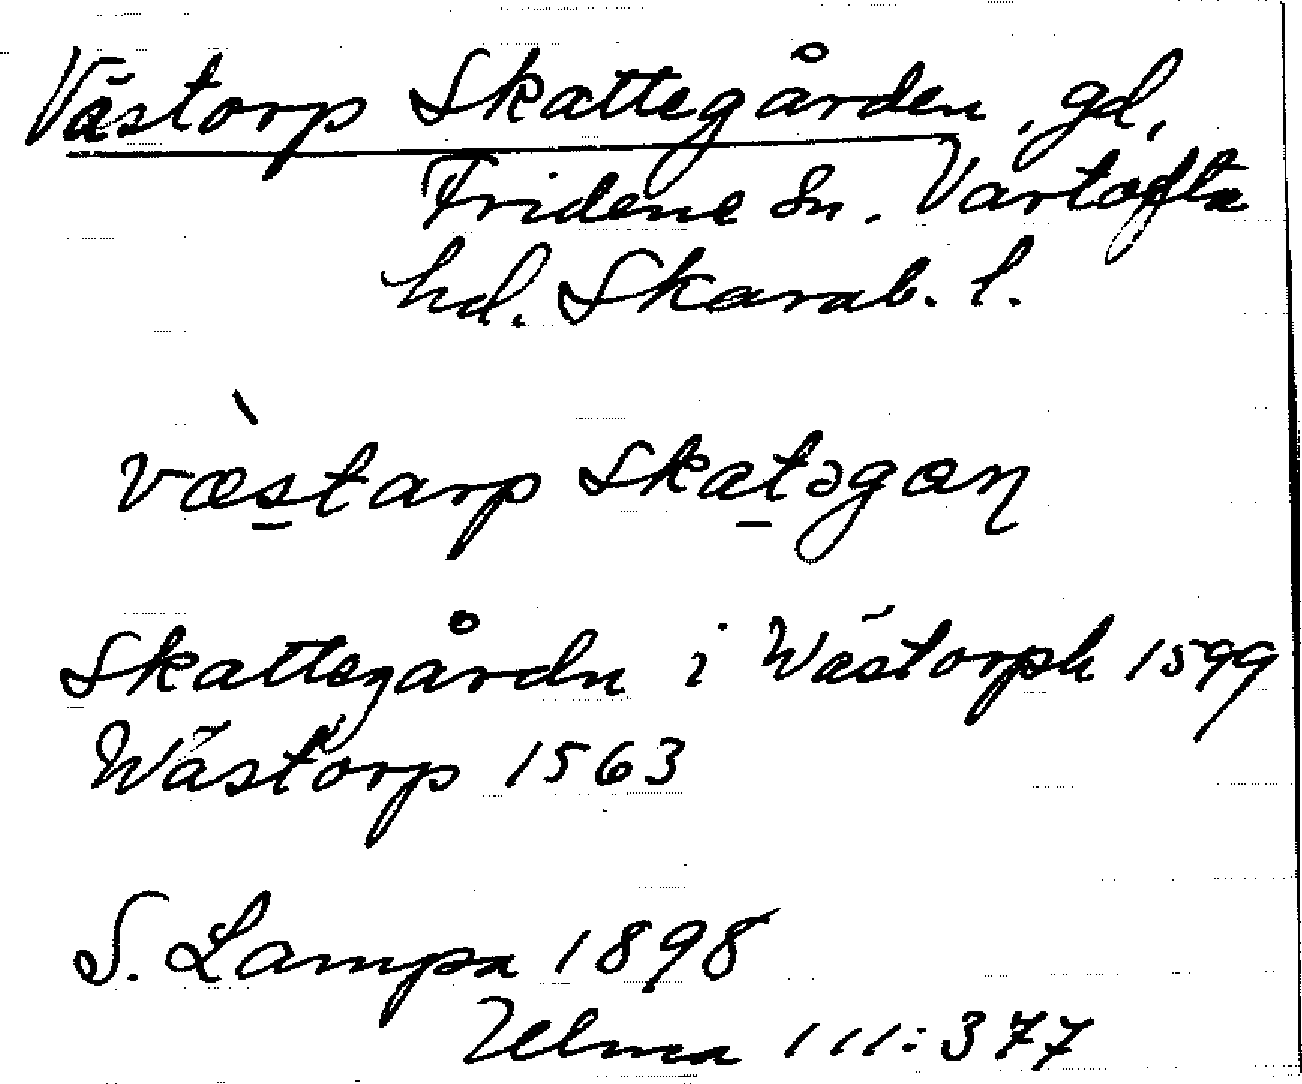 Västorp Skattegården, gd,
Fridene sn. Vartofta
hd. Skarab. l.
væ̀s̱tarp skaṯəgɑn
Skattegårdn i Wästorph 1599
Wästorp 1563
S. Lampa 1898
Ulma 111:377